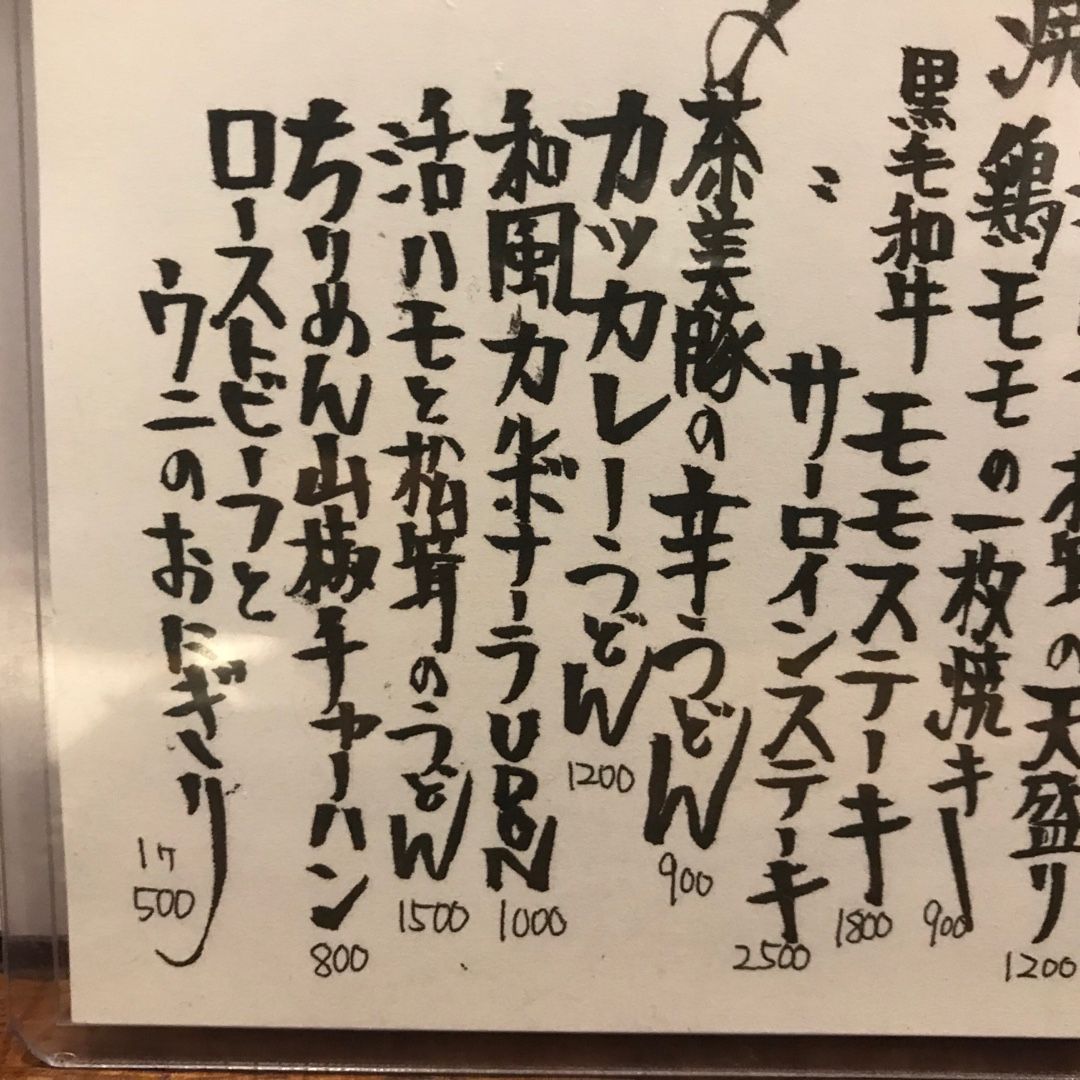 松茸の天盛り
1200
鶏モモの一枚焼き
900
黒毛和牛モモステーキ
1800
〃 サーロインステーキ
2500
〆
茶美豚の辛うどん
900
カツカレーうどん
1200
和風カルボナーラUDON
1000
活ハモと松茸のうどん
1500
ちりめん山椒チャーハン
800
ローストビーフと
ウニのおにぎり
1ヶ
500